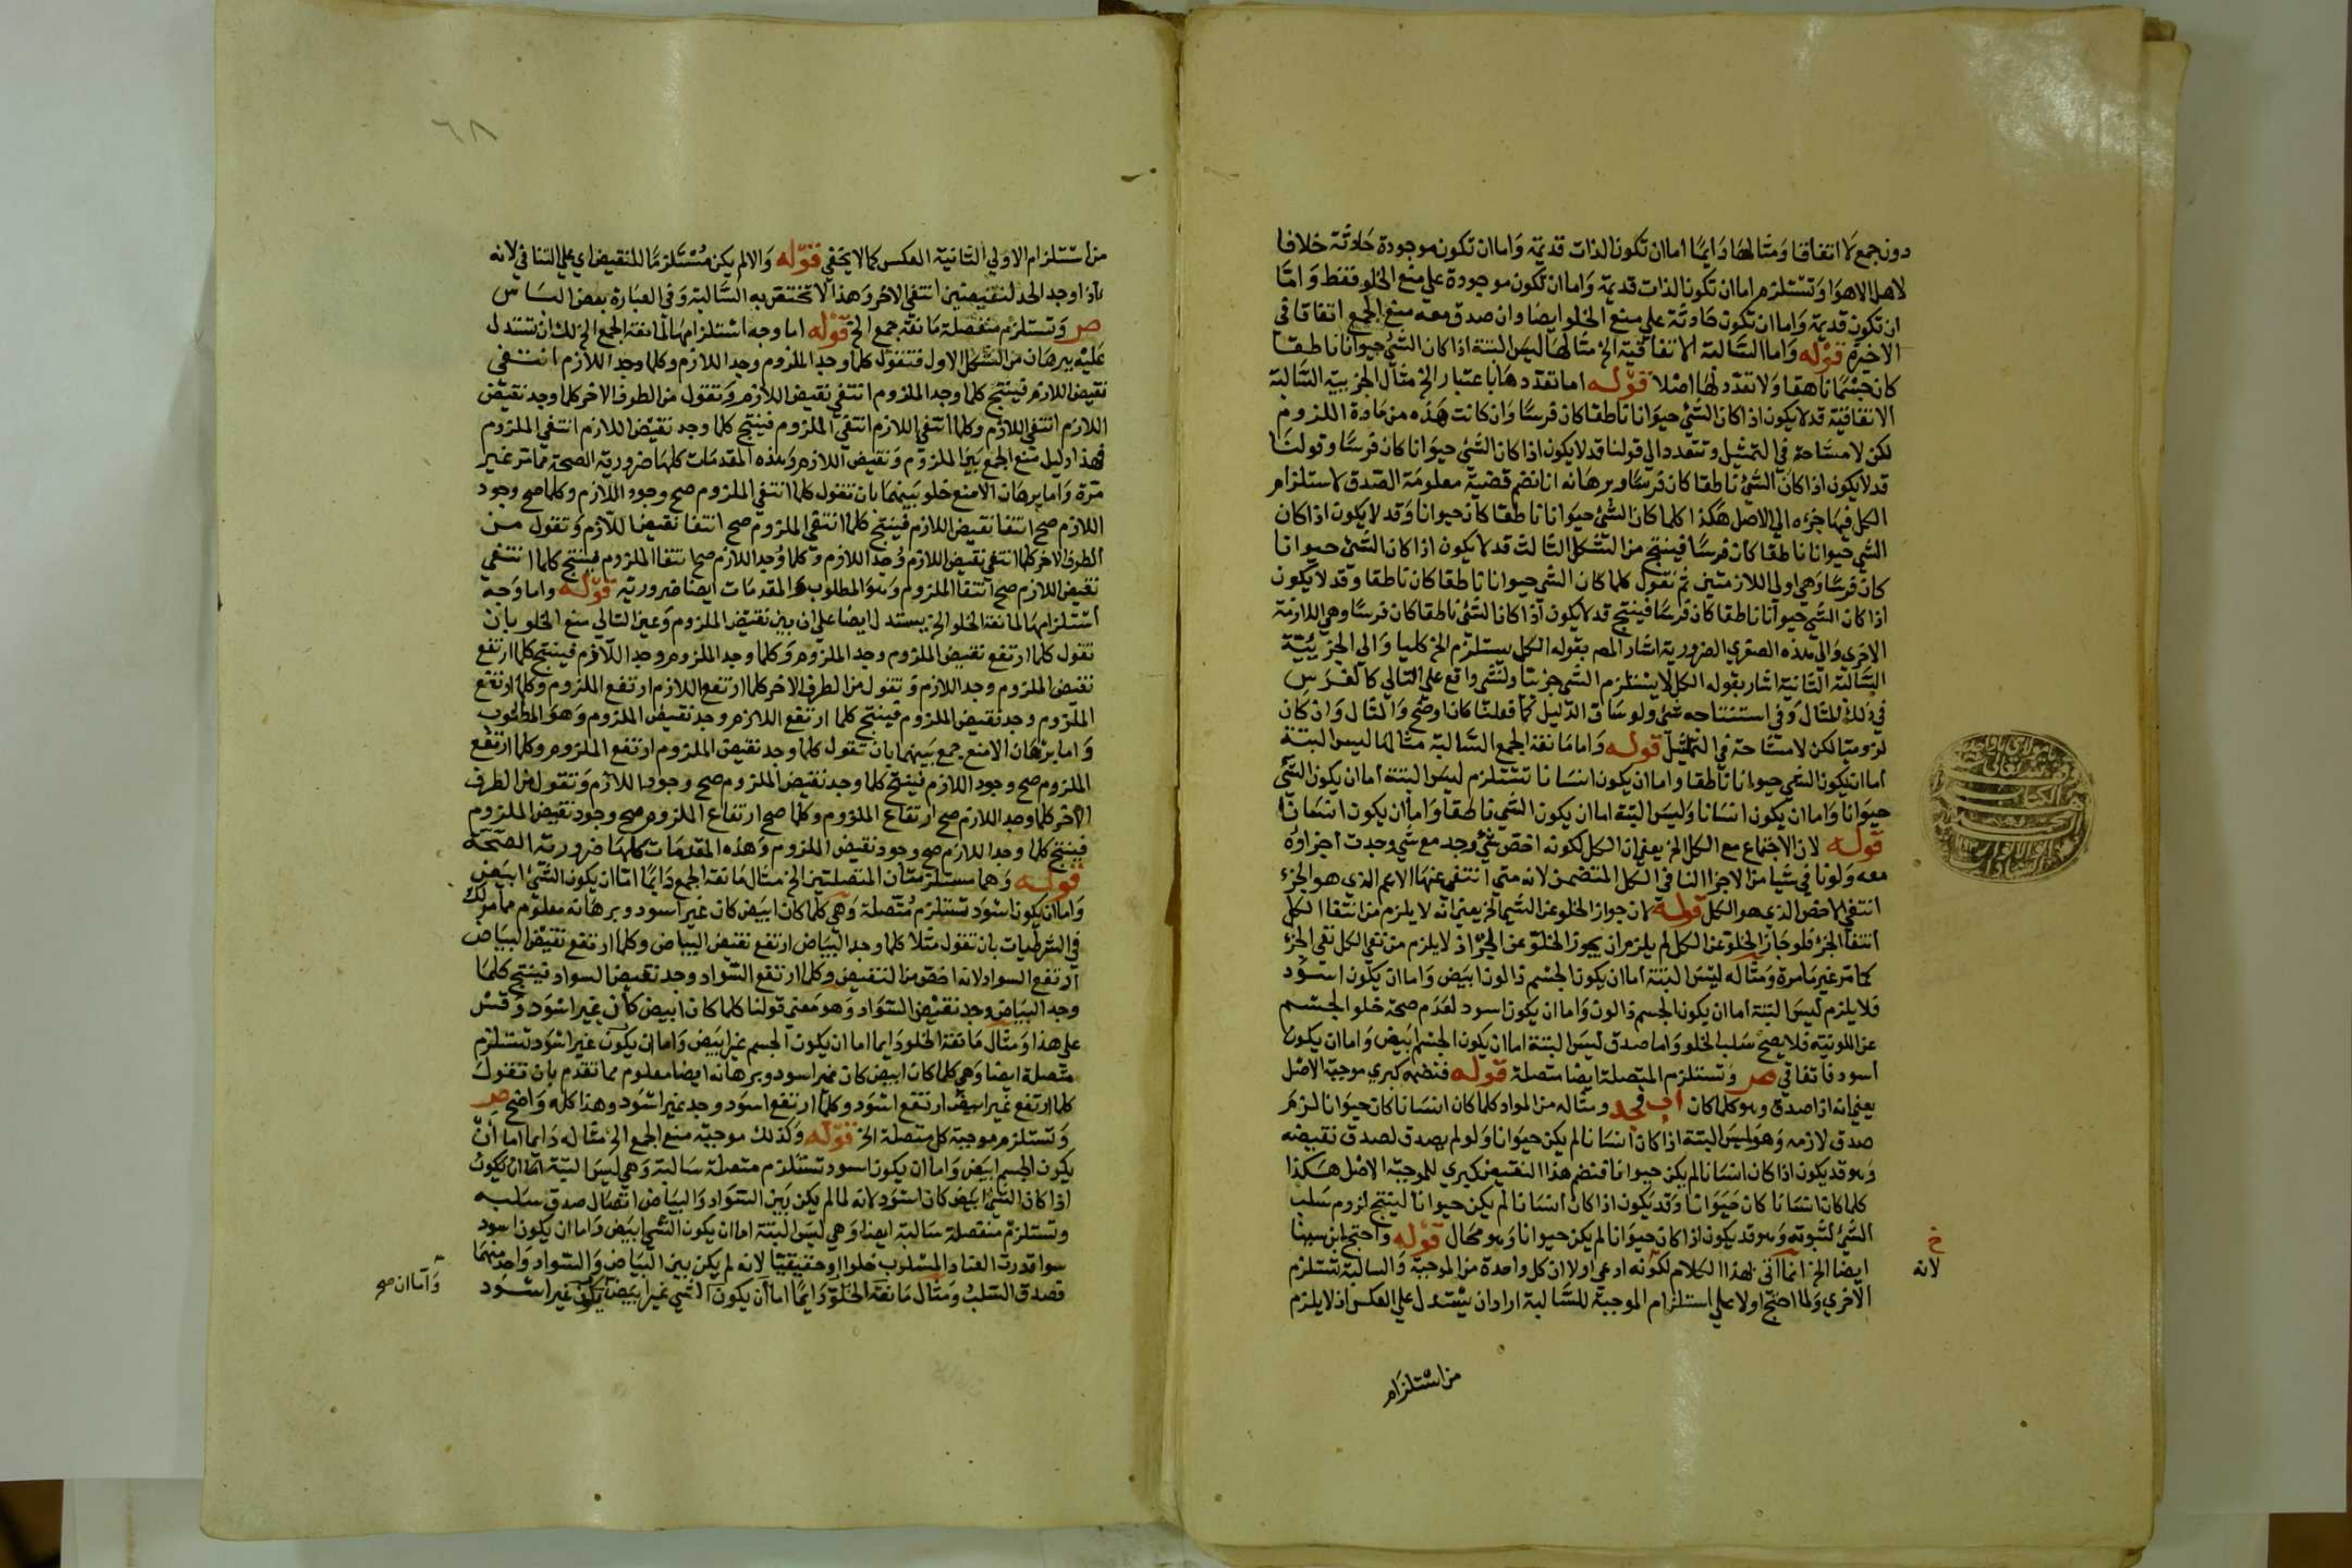 دون جمع لا اتفاقا ومثالها دايما اما ان تكون الذات قديمة واما ان تكون موجودة حادثة خلافا
لاهل الاهوا وتستلزم اما ان تكون الذات قديمة واما ان تكون موجودة علي منع الخلو فقط واما
ان تكون قديمة واما ان تكون حادثة علي منع الخلو ايضا وان صدق معه منع الجمع اتفاقا في
الاخيرة قوله واما السالبة الاتفاقية الخ مثالها ليس البتة اذا كان الشي حيوانا ناطقا
كان جسما ناهقا ولا تعدد لها اصلا قوله اما تعددها باعتبار الخ مثال الجزيية السالبة
الاتفاقية قد لا يكون اذا كان الشي حيوانا ناطقا كان فرسا وان كانت هذه من مادة اللزوم
لكن لا مشاحة في التمثيل وتتعدد الي قولنا قد لا يكون اذا كان الشي حيوانا كان فرسا وقولنا
قد لا يكون اذا كان الشي ناطقا كان فرسا وبرهانه انا نضم قضية معلومة الصدق لاستلزام
الكل فيها جزءه الي الاصل هكذا كلما كان الشي حيوانا ناطقا كان حيوانا وقد لا يكون اذا كان
الشي حيوانا ناطقا كان فرسا فينتج من الشكل الثالث قد لا يكون اذا كان الشي حيوانا
كان فرسا وهي اولي اللازمتين ثم نقول كلما كان الشي حيوانا ناطقا كان ناطقا وقد لا يكون
اذا كان الشي حيوانا ناطقا كان فرسا فينتج قد لا يكون اذا كان الشي ناطقا كان فرسا وهي اللازمة
الاخري والي هذه الصغري الضرورية اشار المص بقوله الكل يستلزم الخ كليا والي الجزيية
السالبة الثانية اشار بقوله الكل لا يستلزم الشي جزييا ولشي واقع علي التالي كالفرس
في ذلك المثال وفي استنتاجه شي ولو ساق الدليل كما فعلنا كان اوضح والمثال وان كان
لزوميا لكن لا مشاحة في التمثيل قوله واما مانعة الجمع السالبة مثالها ليس البتة
اما ان يكون الشي حيوانا ناطقا واما ان يكون انسانا تستلزم ليس البتة اما ان يكون الشي
حيوانا واما ان يكون انسانا وليس البتة اما ان يكون الشي ناطقا واما ان يكون انسانا
قوله لان الاجتماع مع الكل الخ يعني ان الكل لكونه اخص شي وجد مع شي وجدت اجزاوه
معه ولو نافي شيا من الاجزا لنافي الكل المتضمن لانه متي انتفي عنها الاعم الذي هو الجزء
انتفي الاخص الذي هو الكل قوله لان جواز الخلو عن الشي الخ يعني انه لا يلزم من انتفا الكل
انتفا الجزء فلو جاز الخلو عن الكل لم يلزم ان يجوز الخلو عن الجزء اذ لا يلزم من نفي الكل نفي الجزء
كما مر غير ما مرة ومثاله ليس البتة اما ان يكون الجسم ذا لون ابيض واما ان يكون اسود
فلا يلزم ليس البتة اما ان يكون الجسم ذا لون واما ان يكون اسود لعدم صحة خلو الجسم
عن اللونية فلا يصح سلب الخلو واما صدق ليس البتة اما ان يكون الجسم ابيض واما ان يكون
اسود فاتفاقي ص وتستلزم المتصلة ايضا متصلة قوله فتضمه كبري موجبة الاصل
يعني انه اذا صدق وهو كلما كان اب فجد ومثاله من المواد كلما كان انسانا كان حيوانا لزم
صدق لازمه وهو ليس البتة اذا كان انسانا لم يكن حيوانا ولو لم يصدق لصدق نقيضه
وهو قد يكون اذا كان انسانا لم يكن حيوانا فتضم هذا النقيض كبري للموجبة الاصل هكذا
كلما كان انسانا كان حيوانا وقد يكون اذا كان انسانا لم يكن حيوانا لينتج لزوم سلب
الشي لثبوته وهو قد يكون اذا كان حيوانا لم يكن حيوانا وهو محال قوله واحتج ابن سينا
ايضا الخ انما اتي بهذا الكلام لكونه ادعي اولا ان كل واحدة من الموجبة والسالبة تستلزم
الاخري ولما احتج اولا علي استلزام الموجبة للسالبة اراد ان يستدل علي العكس اذ لا يلزم
خ
لانه
من استلزام
٦٨
من استلزام الاولي الثانية العكس كما لا يخفي قوله والا لم يكن مستلزما للنقيض اي علي التنافي لانه
اذا وجد احد النقيضين انتفي الاخر وهذا لا تختص به السالبة وفي العبارة بعض الباس
ص وتستلزم منفصلة مانعة جمع الخ قوله اما وجه استلزامها لمانعة الجمع الخ لك ان تستدل
عليه ببرهان من الشكل الاول فتقول كلما وجد الملزوم وجد اللازم وكلما وجد اللازم انتفي
نقيض اللازم فينتج كلما وجد الملزوم انتفي نقيض اللازم وتقول من الطرف الاخر كلما وجد نقيض
اللازم انتفي اللازم وكلما انتفي اللازم انتفي الملزوم فينتج كلما وجد نقيض اللازم انتفي الملزوم
فهذا دليل منع الجمع بين الملزوم ونقيض اللازم وهذه المقدمات كلها ضرورية الصحة مما مر غير
مرة واما برهان الا منع خلو بينهما بان تقول كلما انتفي الملزوم صح وجود اللازم وكلما صح وجود
اللازم صح انتفا نقيض اللازم فينتج كلما انتفي الملزوم صح انتفا نقيض اللازم وتقول من
الطرف الاخر كلما انتفي نقيض اللازم وجد اللازم وكلما وجد اللازم صح انتفا الملزوم فينتج كلما انتفي
نقيض اللازم صح انتفا الملزوم وهو المطلوب والمقدمات ايضا ضرورية قوله واما وجه
استلزامها لمانعة الخلو الخ يستدل ايضا علي ان بين نقيض الملزوم وعين التالي منع الخلو بان
تقول كلما ارتفع نقيض الملزوم وجد الملزوم وكلما وجد الملزوم وجد اللازم فينتج كلما ارتفع
نقيض الملزوم وجد اللازم وتقول من الطرف الاخر كلما ارتفع اللازم ارتفع الملزوم وكلما ارتفع
الملزوم وجد نقيض الملزوم فينتج كلما ارتفع اللازم وجد نقيض الملزوم وهو المطلوب
واما برهان الا منع جمع بينهما بان تقول كلما وجد نقيض الملزوم ارتفع الملزوم وكلما ارتفع
الملزوم صح وجود اللازم فينتج كلما وجد نقيض الملزوم صح وجود اللازم وتقول من الطرف
الاخر كلما وجد اللازم صح ارتفاع الملزوم وكلما صح ارتفاع الملزوم صح وجود نقيض الملزوم
فينتج كلما وجد اللازم صح وجود نقيض الملزوم وهذه المقدمات كلها ضرورية الصحة
قوله وهما يستلزمتان المتصلتين الخ مثال مانعة الجمع دايما اما ان يكون الشي ابيض
واما ان يكون اسود تستلزم متصلة وهي كلما كان ابيض كان غير اسود وبرهانه معلوم مما مر لك
في الشرطيات بان تقول مثلا كلما وجد البياض ارتفع نقيض البياض وكلما ارتفع نقيض البياض
ارتفع السواد لانه اخص من النقيض وكلما ارتفع السواد وجد نقيض السواد فينتج كلما
وجد البياض وجد نقيض السواد وهو معني قولنا كلما كان ابيض كان غير اسود وقس
علي هذا ومثال مانعة الخلو دايما اما ان يكون الجسم غير ابيض واما ان يكون غير اسود تستلزم
متصلة ايضا وهي كلما كان ابيض كان غير اسود وبرهانه ايضا معلوم مما تقدم بان تقول
كلما ارتفع غير ابيض ارتفع اسود وكلما ارتفع اسود وجد غير اسود وهذا كله واضح ص
وتستلزم موجبة كل متصلة الخ قوله وكذلك موجبة منع الجمع الخ مثاله دايما اما ان
يكون الجسم ابيض واما ان يكون اسود تستلزم متصلة سالبة وهي ليس البتة اما ان يكون
اذا كان الشي ابيض كان اسود لانه لما لم يكن بين السواد والبياض اتصال صدق سلبه
وتستلزم منفصلة سالبة ايضا وهي ليس البتة اما ان يكون الشي ابيض واما ان يكون اسود
سوا قدرت العناد المسلوب خلوا او حقيقيا لانه لم يكن بين البياض والسواد واحد منهما
فصدق السلب ومثال مانعة الخلو دايما اما ان يكون الشي غير ابيض يكون غير اسود
واما ان صح